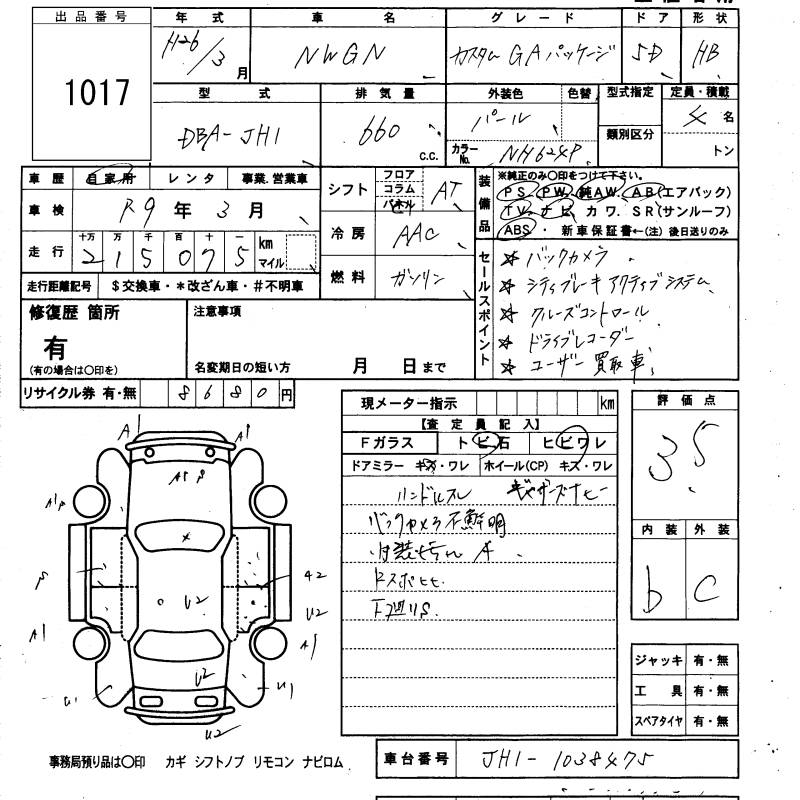 出品番号
1017
年式 車名 グレード ドア 形状
H26/3月 NWGN カスタム GAパッケージ 5D HB
型式 排気量 外装色 色替 型式指定 定員・積載
DBA-JH1 660 c.c. パール カラーNo. NH624P 類別区分 4名 トン
車歴 自家用 レンタ 事業.営業車
車検 R9年3月
走行 十万 万 千 百 十 一
215075 km マイル
走行距離記号 $交換車・*改ざん車・#不明車
シフト フロア コラム パネル AT
冷房 AAC
燃料 ガソリン
装備品
※純正のみ〇印をつけて下さい。
PS PW 純AW. AB(エアバック)
TV ナビ カワ. SR(サンルーフ)
ABS・新車保証書←(注)後日送りのみ
セールスポイント
☆ バックカメラ
☆ シティブレーキ アクティブシステム
☆ クルーズコントロール
☆ ドライブレコーダー
☆ ユーザー買取車
修復歴 箇所
有
(有の場合は〇印を)
注意事項
名変期日の短い方 月 日まで
リサイクル券 有・無 8680円
現メーター指示 km
【査定員記入】
Fガラス トビ石 ヒビワレ
ドアミラー キズ・ワレ ホイール(CP) キズ・ワレ
ハンドルスレ
バックカメラ不鮮明
下廻りS.
評価点
35
内装 外装
b C
ジャッキ 有・無
工具 有・無
スペアタイヤ 有・無
A1 A1
A1P P
A1P
P A2
U2 U2
A1 A1
U2
U1 U1
U2
事務局預り品は〇印 カギ シフトノブ リモコン ナビロム
車台番号 JH1-1038475